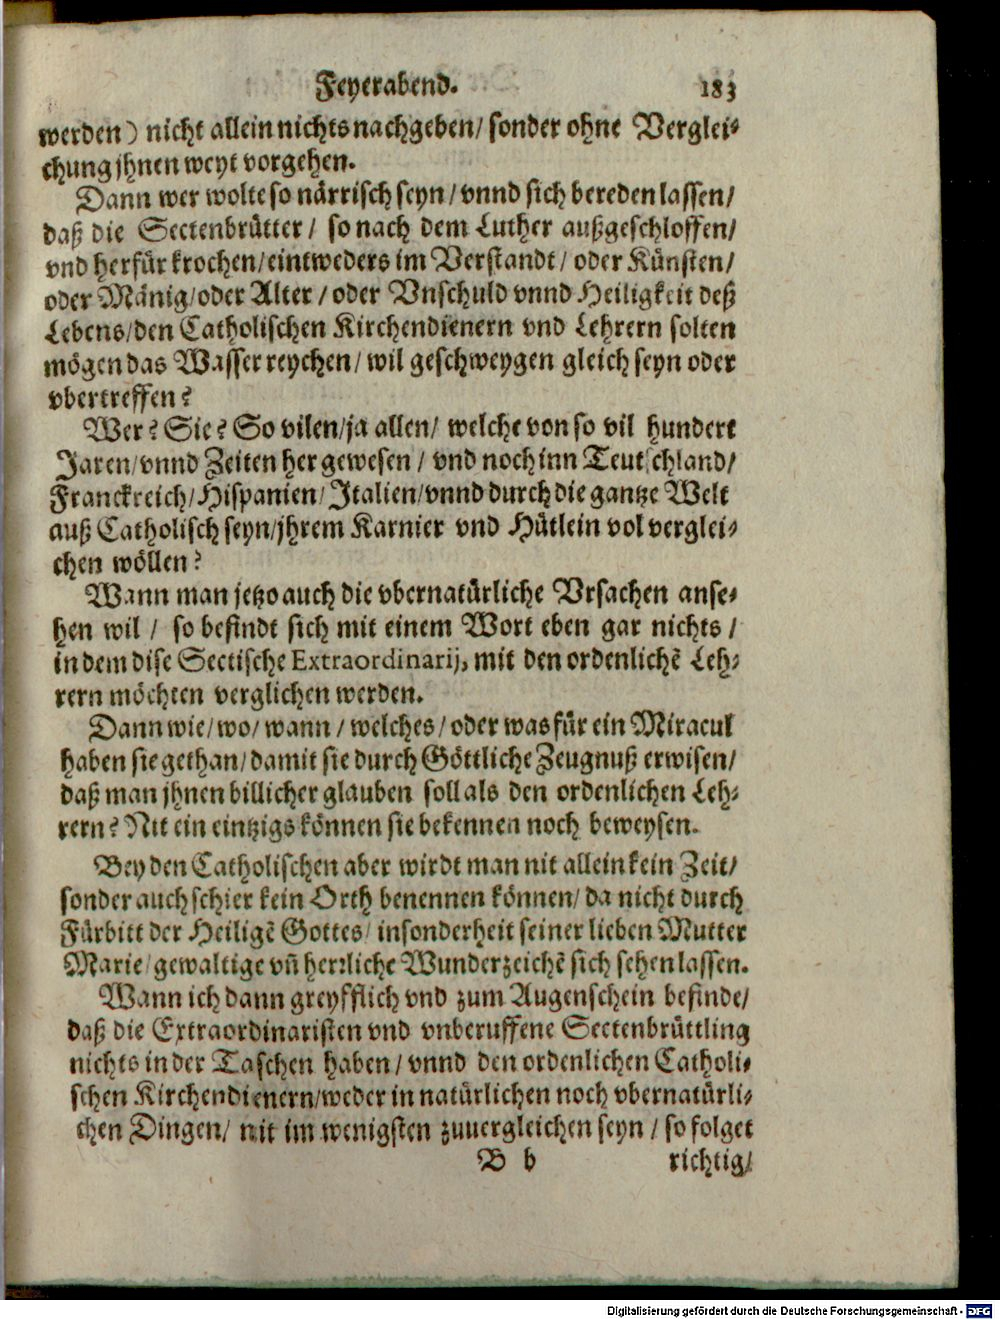 Feyerabend. 183
werden) nicht allein nichts nachgeben/ sonder ohne Verglei-
chung jhnen weyt vorgehen.
Dann wer wolte so närrisch seyn/ vnnd sich bereden lassen/
daß die Sectenbrütter/ so nach dem Luther außgeschloffen/
vnd herfür krochen/ eintweders im Verstandt/ oder Künsten/
oder Mänig/ oder Alter/ oder Vnschuld vnnd Heiligkeit deß
Lebens/ den Catholischen Kirchendienern vnd Lehrern solten
mögen das Wasser reychen/ wil geschweygen gleich seyn oder
vbertreffen?
Wer? Sie? So vilen/ ja allen/ welche von so vil hundert
Jaren/ vnnd Zeiten her gewesen/ vnd noch inn Teutschland/
Franckreich/ Hispanien/ Italien/ vnnd durch die gantze Welt
auß Catholisch seyn/ jhrem Karnier vnd Hütlein vol verglei-
chen wöllen?
Wann man jetzo auch die vbernatürliche Vrsachen anse-
hen wil/ so befindt sich mit einem Wort eben gar nichts/
in dem dise Sectische Extraordinarij, mit den ordenlichē Leh-
rern möchten verglichen werden.
Dann wie/ wo/ wann/ welches/ oder was für ein Miracul
haben sie gethan/ damit sie durch Göttliche Zeugnuß erwisen/
daß man jhnen billicher glauben soll als den ordenlichen Leh-
rern? Nit ein eintzigs können sie bekennen noch beweysen.
Bey den Catholischen aber wirdt man nit allein kein Zeit/
sonder auch schier kein Orth benennen können/ da nicht durch
Fürbitt der Heiligē Gottes/ insonderheit seiner lieben Mutter
Marie/ gewaltige vn̄ herrliche Wunderzeichē sich sehen lassen.
Wann ich dann greyfflich vnd zum Augenschein befinde/
daß die Extraordinaristen vnd vnberuffene Sectenbrüttling
nichts in der Taschen haben/ vnnd den ordenlichen Catholi-
schen Kirchendienern/ weder in natürlichen noch vbernatürli-
chen Dingen/ nit im wenigsten zuuergleichen seyn/ so folget
B b richtig/
Digitalisierung gefördert durch die Deutsche Forschungsgemeinschaft - DFG